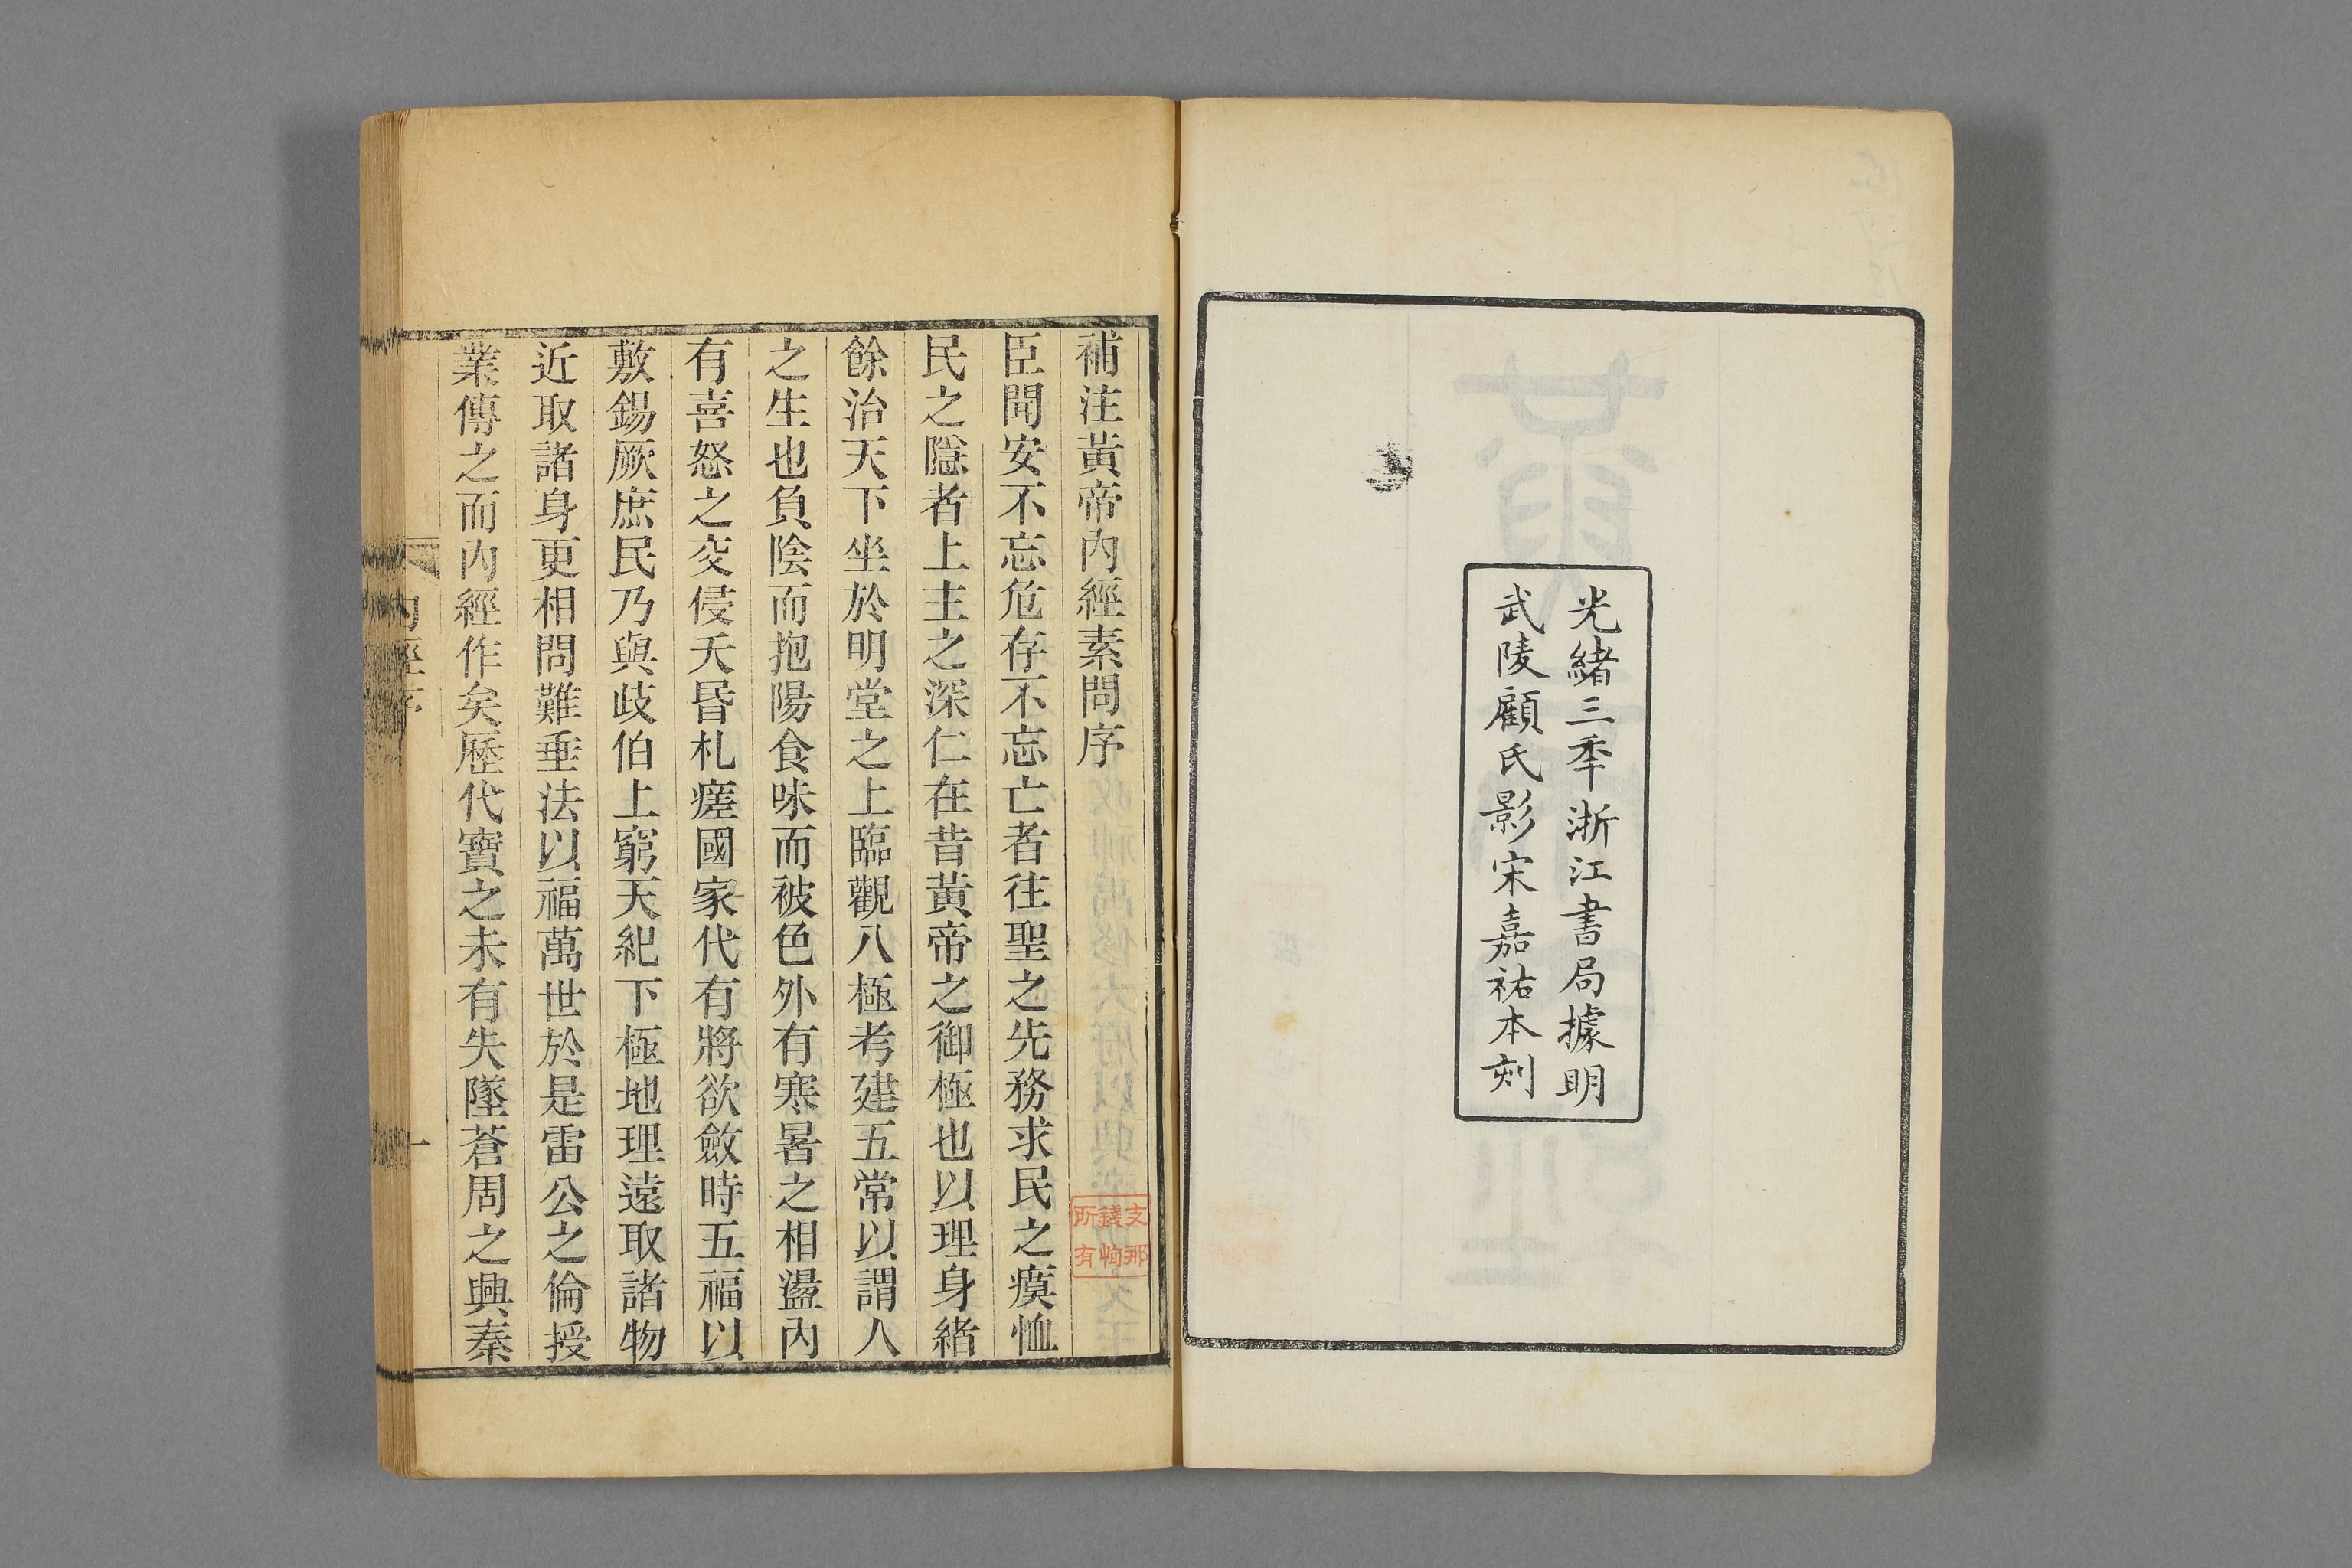 光緒三秊浙江書局據明
武陵顧氏影宋嘉祐本刻
補注黃帝內經素問序
臣聞安不忘危存不忘亡者往聖之先務求民之瘼恤
民之隱者上主之深仁在昔黃帝之御極也以理身緒
餘治天下坐於明堂之上臨觀八極考建五常以謂人
之生也負陰而抱陽食味而被色外有寒暑之相盪內
有喜怒之交侵夭昬札瘥國家代有將欲斂時五福以
敷錫厥庶民乃與歧伯上窮天紀下極地理遠取諸物
近取諸身更相問難垂法以福萬世於是雷公之倫授
業傳之而內經作矣歷代寶之未有失墜蒼周之興秦
內經序
一
支那
錢恂
所有